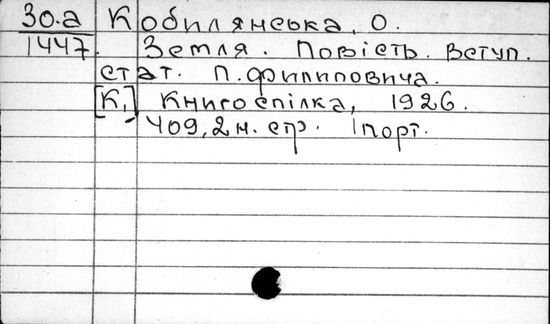 30.а Кобилянська, О.
1447. Земля. Повість. Вступ.
стат. П. Филиповича.
[К.] Книгоспілка, 1926.
409, 2 н. стр. 1 порт.